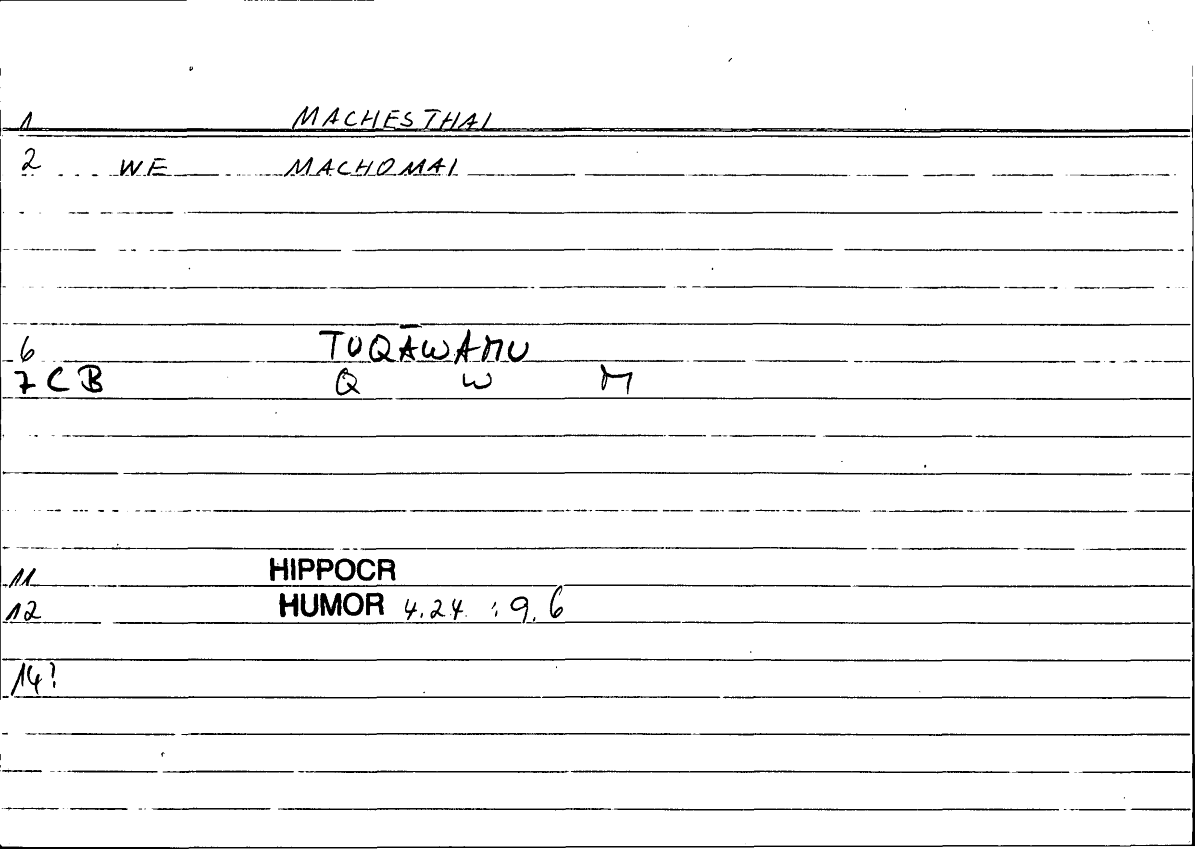 1 MACHESTHAI
2 WE MACHOMAI
6 TUQĀWAMU
7 CB Q W M
11 HIPPOCR
12 HUMOR 4.24 ; 9.6
14?